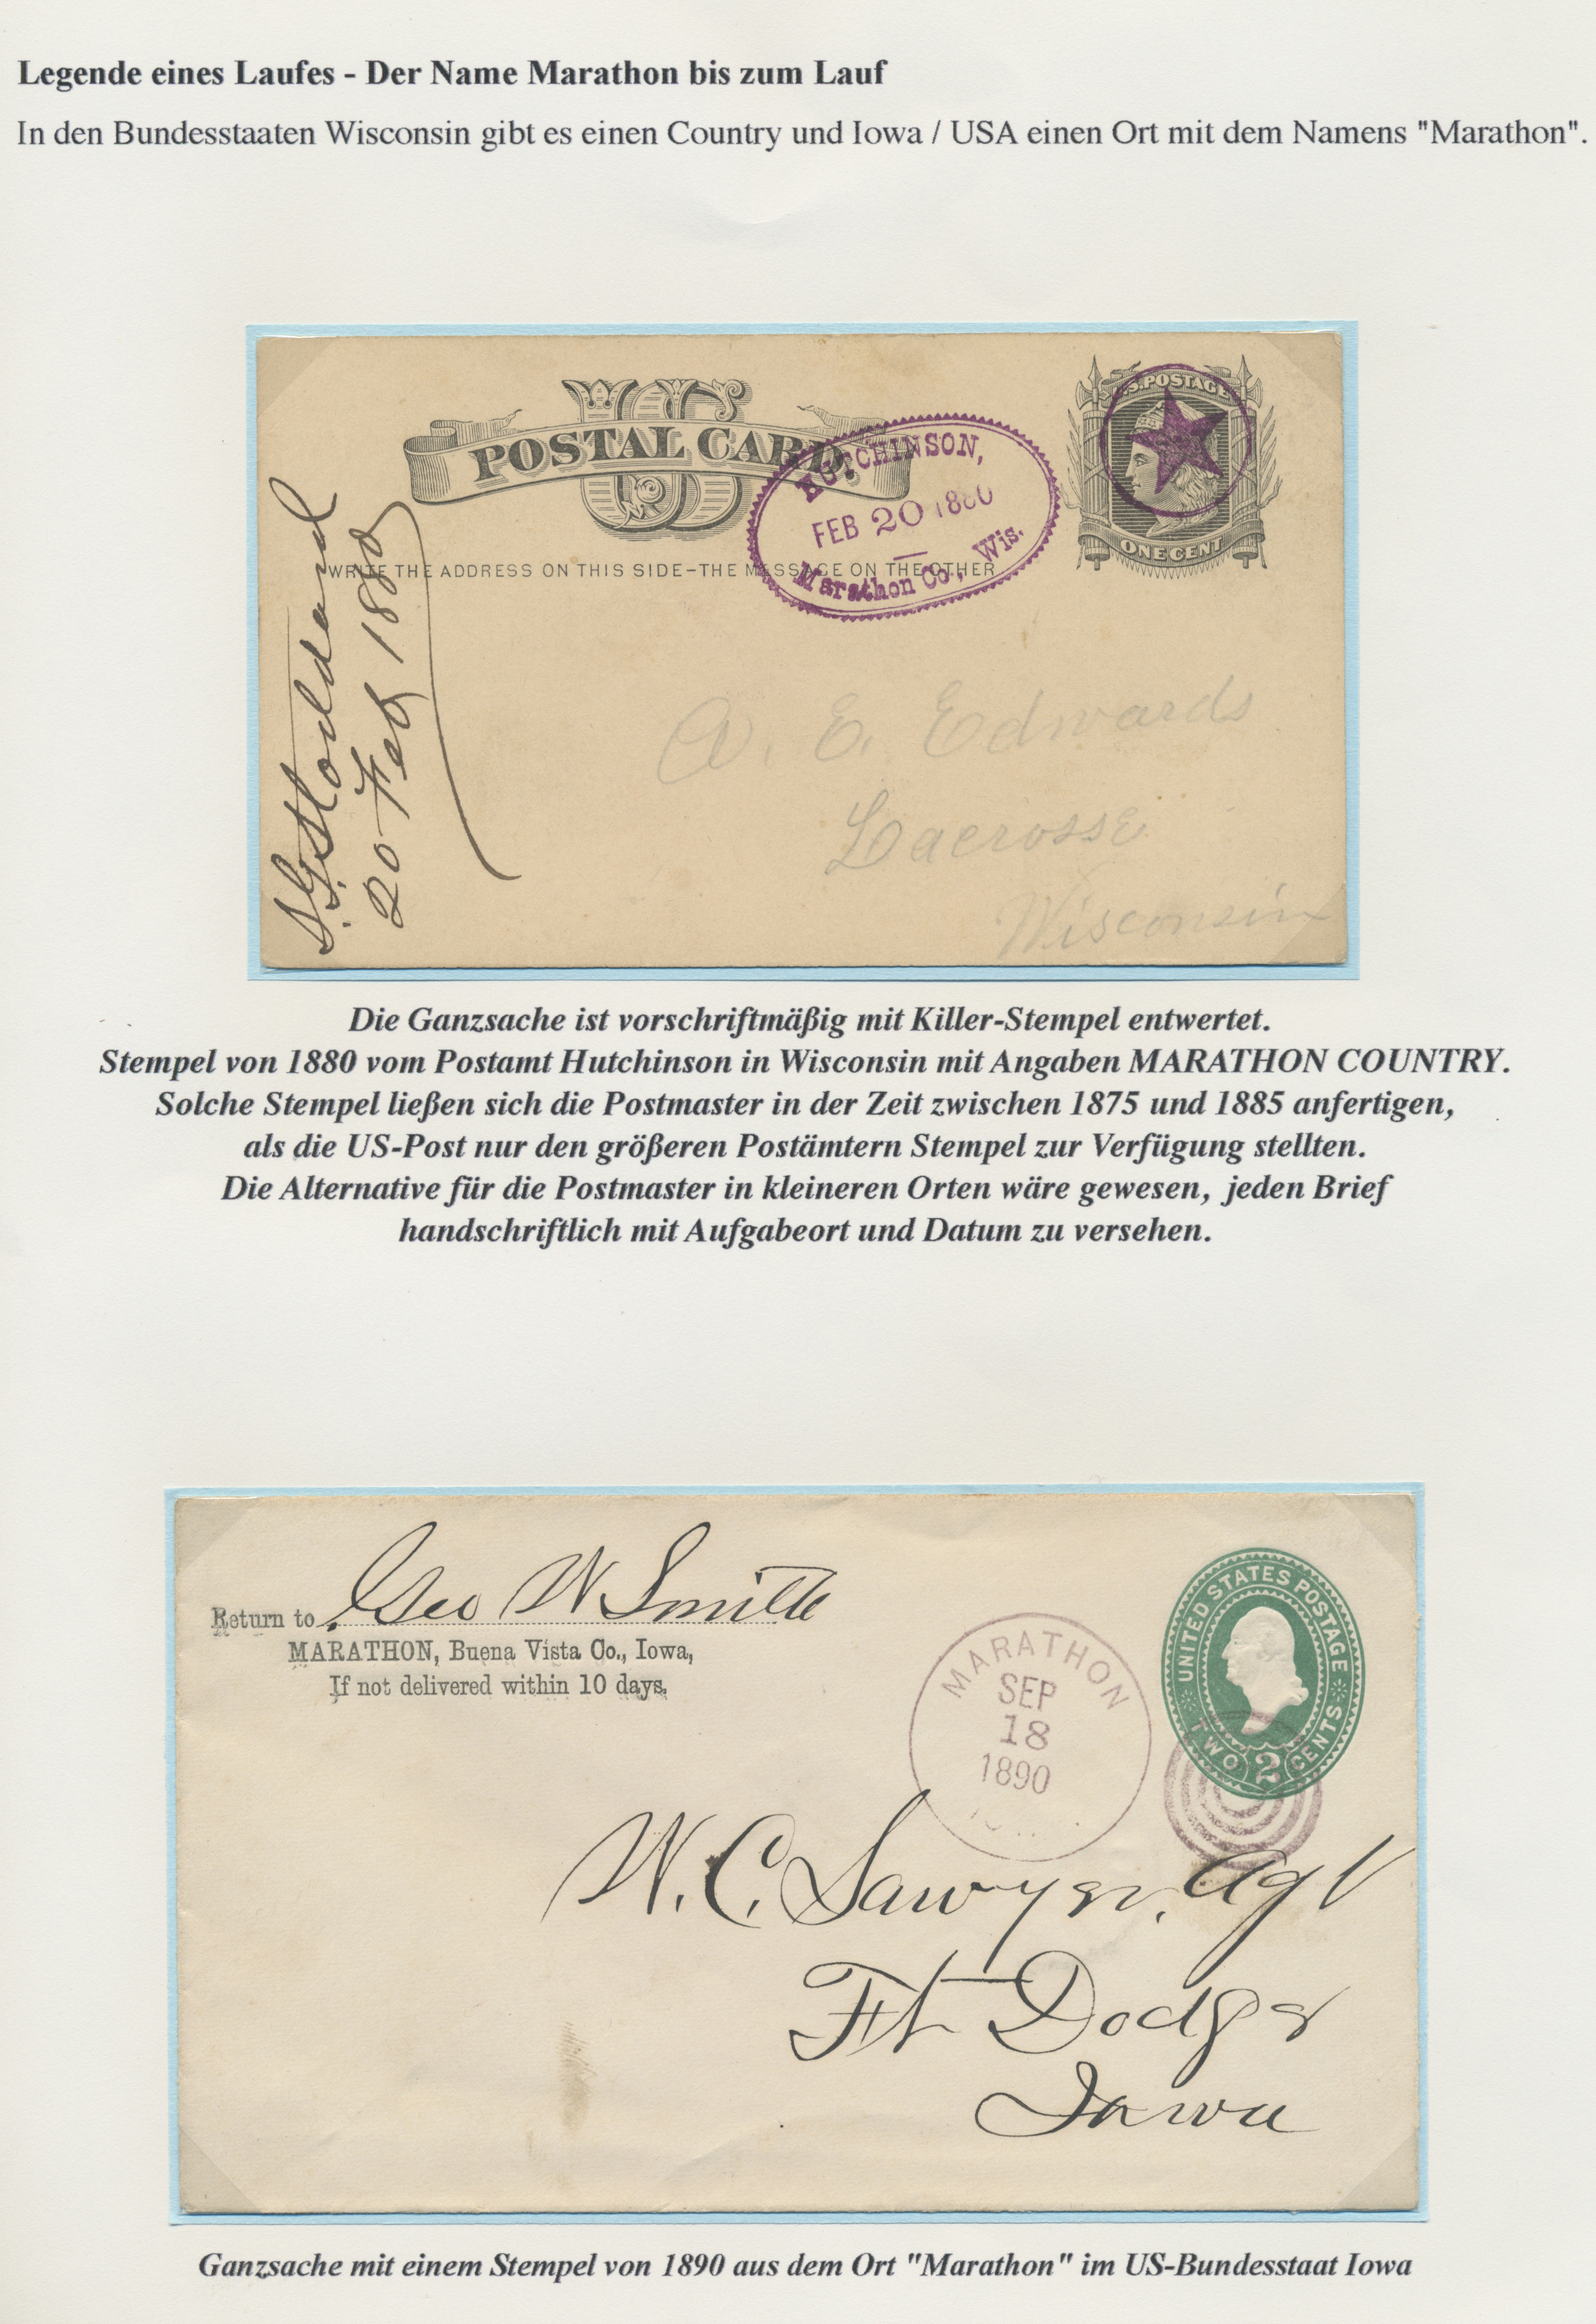 Legende eines Laufes - Der Name Marathon bis zum Lauf
In den Bundesstaaten Wisconsin gibt es einen Country und Iowa / USA einen Ort mit dem Namens "Marathon".
US
POSTAL CARD.
WRITE THE ADDRESS ON THIS SIDE-THE MESSAGE ON THE OTHER
HUTCHINSON,
FEB 20 1880
Marathon Co., Wis.
U.S. POSTAGE
ONE CENT
20 Feb 1880
A. E. Edwards
Lacrosse
Wisconsin
Die Ganzsache ist vorschriftmäßig mit Killer-Stempel entwertet.
Stempel von 1880 vom Postamt Hutchinson in Wisconsin mit Angaben MARATHON COUNTRY.
Solche Stempel ließen sich die Postmaster in der Zeit zwischen 1875 und 1885 anfertigen,
als die US-Post nur den größeren Postämtern Stempel zur Verfügung stellten.
Die Alternative für die Postmaster in kleineren Orten wäre gewesen, jeden Brief
handschriftlich mit Aufgabeort und Datum zu versehen.
Return to Geo W Smith
MARATHON, Buena Vista Co., Iowa,
If not delivered within 10 days.
MARATHON
SEP
18
1890
UNITED STATES POSTAGE
TWO 2 CENTS
W. C. Sawyer, Agt
Ft Dodge
Iowa
Ganzsache mit einem Stempel von 1890 aus dem Ort "Marathon" im US-Bundesstaat Iowa